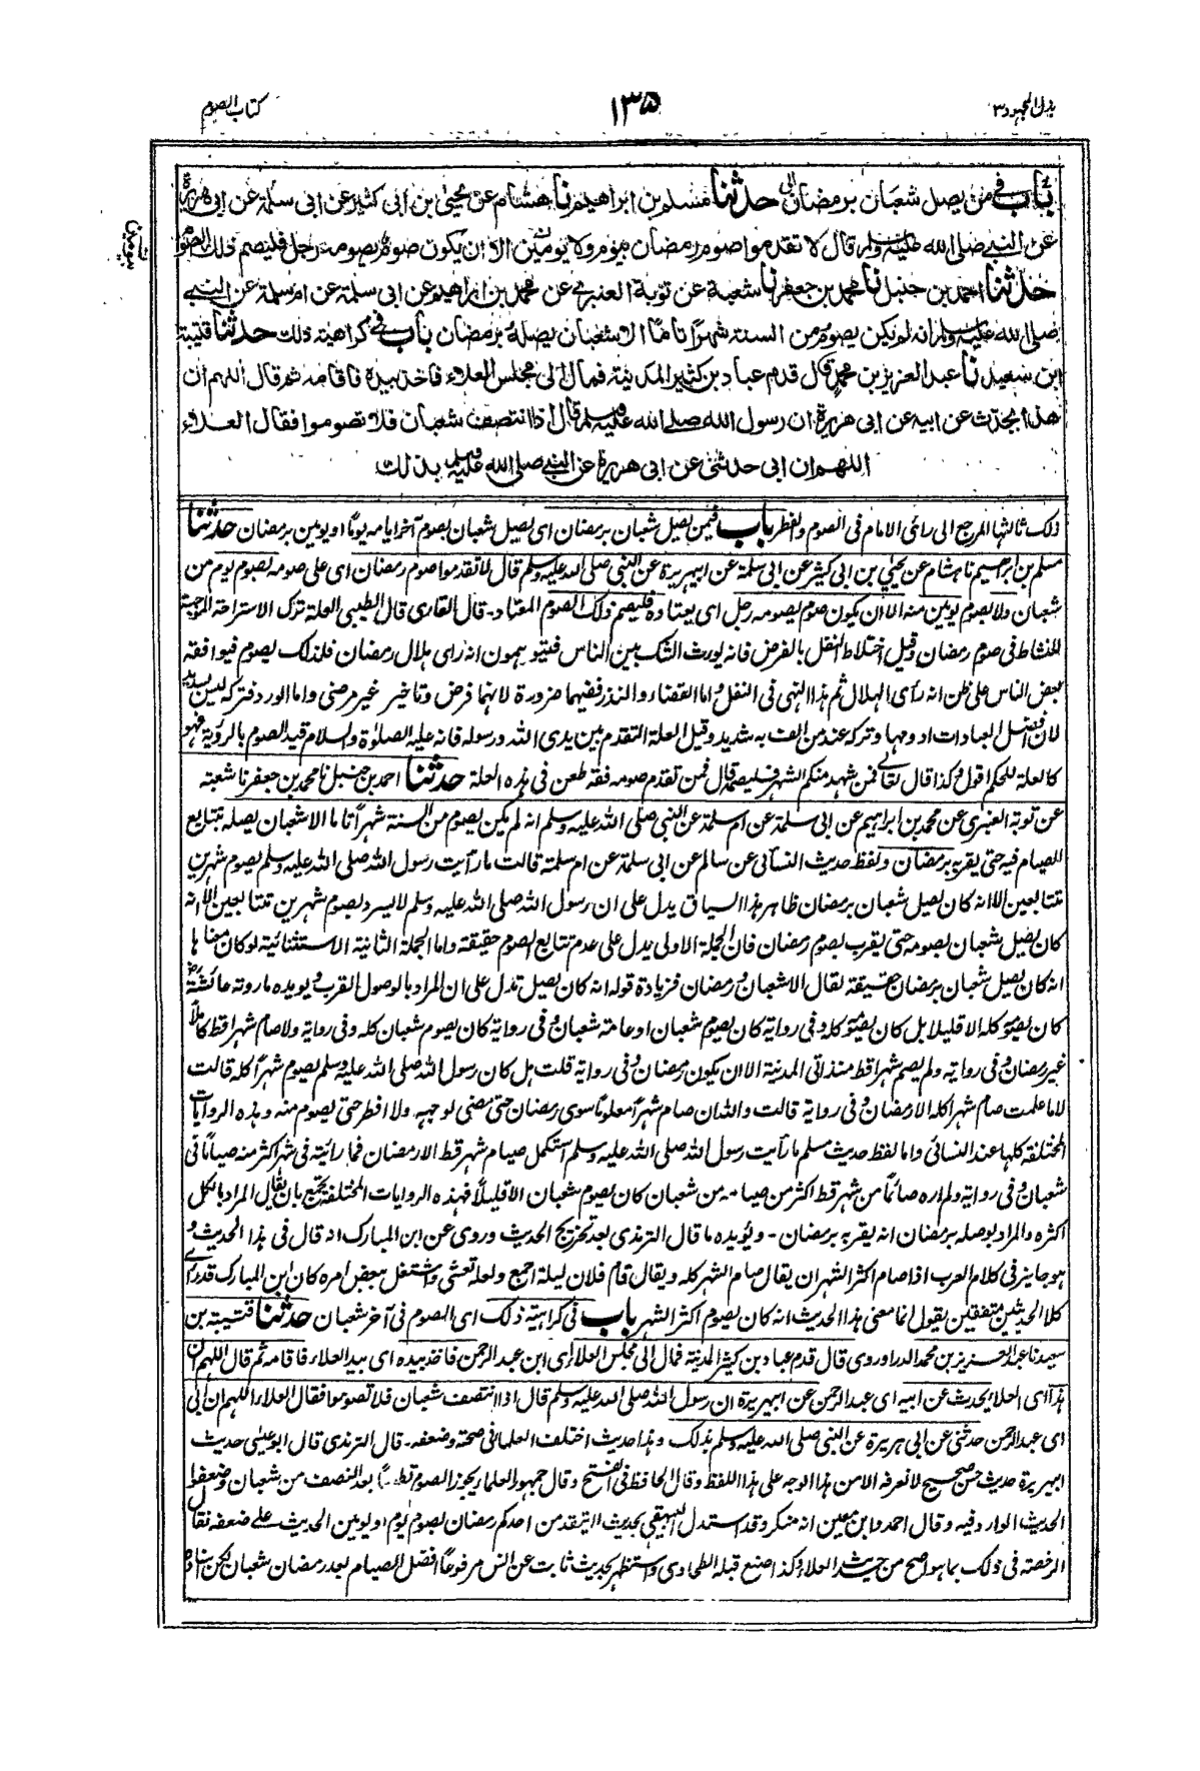 بذل المجهود ٣
١٣٥
كتاب الصوم
باب في من يصل شعبان برمضان حدثنا مسلم بن ابراهيم نا هشام عن يحيى بن ابى كثير عن ابى سلمة عن ابى هريرة
عن النبي صلى الله عليه وسلم قال لا تقدموا صوم رمضان بيوم ولا يومين الا ان يكون صوم يصومه رجل فليصم ذلك الصوم
يومين
حدثنا احمد بن حنبل نا محمد بن جعفر نا شعبة عن توبة العنبري عن محمد بن ابراهيم عن ابى سلمة عن ام سلمة عن النبي
صلى الله عليه وسلم انه لم يكن يصوم من السنة شهرا تاما الا شعبان يصله برمضان باب في كراهية ذلك حدثنا قتيبة
ابن سعيد نا عبد العزيز بن محمد قال قدم عباد بن كثير المدينة فمال الى مجلس العلاء فاخذ بيده فاقامه ثم قال اللهم ان
هذا يحدث عن ابيه عن ابى هريرة ان رسول الله صلى الله عليه وسلم قال اذا انتصف شعبان فلا تصوموا فقال العلاء
اللهم ان ابى حدثنى عن ابى هريرة عن النبي صلى الله عليه وسلم بذلك
ذلك ثالثها المرجع الى رائى الامام فى الصوم والفطر باب فيمن يصل شعبان برمضان اى يصل شعبان بصوم آخر ايامه يوما او يومين برمضان حدثنا
مسلم بن ابراهيم نا هشام عن يحيى بن ابى كثير عن ابى سلمة عن ابى هريرة عن النبي صلى الله عليه وسلم قال لا تقدموا صوم رمضان اى على صومه بصوم يوم من
شعبان ولا بصوم يومين منه الا ان يكون صوم يصومه رجل اى يعتاده فليصم ذلك الصوم المعتاد - قال القارى قال الطيبى العلة ترك الاستراحة الموجبة
للنشاط فى صوم رمضان وقيل اختلاط النفل بالفرض فانه يورث الشك بين الناس فيتوهمون انه راى هلال رمضان فلذلك يصوم فيوافقه
بعض الناس على ظن انه رأى الهلال ثم هذا النهى فى النفل واما القضاء والنذر ففيهما ضرورة لانهما فرض وتاخير غير مرضى واما الورد فتركه ليس بسديد
لان افضل العبادات ادومها وتركه عند من الف به شديد وقيل العلة التقدم بين يدى الله ورسوله فانه عليه الصلوة والسلام قيد الصوم بالرؤية فهو
كالعلة للحكم اقول وكذا قال تعالى فمن شهد منكم الشهر فليصمه قال فمن تقدم صومه فقد طعن فى هذه العلة حدثنا احمد بن حنبل نا محمد بن جعفر نا شعبة
عن توبة العنبرى عن محمد بن ابراهيم عن ابى سلمة عن ام سلمة عن النبى صلى الله عليه وسلم انه لم يكن يصوم من السنة شهرا تاما الا شعبان يصله بتتابع
الصيام فيه حتى يقربه برمضان ولفظ حديث النسائى عن سالم عن ابى سلمة عن ام سلمة قالت ما رأيت رسول الله صلى الله عليه وسلم يصوم شهرين
متتابعين الا انه كان يصل شعبان برمضان ظاهر هذا السياق يدل على ان رسول الله صلى الله عليه وسلم لا يسرد بصوم شهرين متتابعين الا انه
كان يصل شعبان بصومه حتى يقرب بصوم رمضان فان الجملة الاولى يدل على عدم تتابع الصوم حقيقة واما الجملة الثانية الاستثنائية لو كان معناها
انه كان يصل شعبان برمضان حقيقة لقال الا شعبان ورمضان فزيادة قوله انه كان يصل تدل على ان المراد بالوصول القرب ويؤيده ما روته عائشة
كان يصومه كله الا قليلا بل كان يصومه كله وفى رواية كان يصوم شعبان او عامة شعبان وفى رواية كان يصوم شعبان كله وفى رواية ولا صام شهرا قط كاملا
غير رمضان وفى رواية ولم يصم شهرا قط منذ اتى المدينة الا ان يكون رمضان وفى رواية قلت هل كان رسول الله صلى الله عليه وسلم يصوم شهرا كله قالت
لا ما علمت صام شهرا كله الا رمضان وفى رواية قالت والله ان صام شهرا معلوما سوى رمضان حتى مضى لوجهه ولا افطر حتى يصوم منه وهذه الروايات
المختلفة كلها عند النسائى واما لفظ حديث مسلم ما رأيت رسول الله صلى الله عليه وسلم استكمل صيام شهر قط الا رمضان فما رأيته فى شهر اكثر منه صياما فى
شعبان وفى رواية ولم اره صائما من شهر قط اكثر من صيامه من شعبان كان يصوم شعبان الا قليلا فهذه الروايات المختلفة يجتمع بان يقال المراد بالكل
اكثره والمراد بوصله برمضان انه يقربه برمضان - ويؤيده ما قال الترمذى بعد تخريج الحديث وروى عن ابن المبارك انه قال فى هذا الحديث و
هو جايز فى كلام العرب اذا صام اكثر الشهر ان يقال صام الشهر كله ويقال قام فلان ليلة اجمع ولعله تعشى واشتغل ببعض امره كان ابن المبارك قد راى
كلا الحديثين متفقين يقول انما معنى هذا الحديث انه كان يصوم اكثر الشهر باب فى كراهية ذلك اى الصوم فى آخر شعبان حدثنا قتيبة بن
سعيد نا عبد العزيز بن محمد الدراوردى قال قدم عباد بن كثير المدينة فمال الى مجلس العلاء اى ابن عبد الرحمن فاخذ بيده اى بيد العلاء فاقامه ثم قال اللهم ان
هذا اى العلاء يحدث عن ابيه اى عبد الرحمن عن ابى هريرة ان رسول الله صلى الله عليه وسلم قال اذا انتصف شعبان فلا تصوموا فقال العلاء اللهم ان ابى
اى عبد الرحمن حدثنى عن ابى هريرة عن النبى صلى الله عليه وسلم بذلك وهذا حديث اختلف العلماء فى صحته وضعفه - قال الترمذى قال ابو عيسى حديث
ابى هريرة حديث حسن صحيح لا نعرفه الا من هذا الوجه على هذا اللفظ وقال الحافظ فى الفتح وقال جمهور العلماء يجوز الصوم تطوعا بعد النصف من شعبان وضعفوا
الحديث الوارد فيه وقال احمد وابن معين انه منكر وقد استدل البيهقى بحديث لا يتقدمن احدكم رمضان بصوم يوم او يومين الحديث على ضعفه فقال
الرخصة فى ذلك بما هو اصح من حديث العلاء وكذا صنع قبله الطحاوى واستظهر بحديث ثابت عن انس مرفوعا افضل الصيام بعد رمضان شعبان لكن اسناده